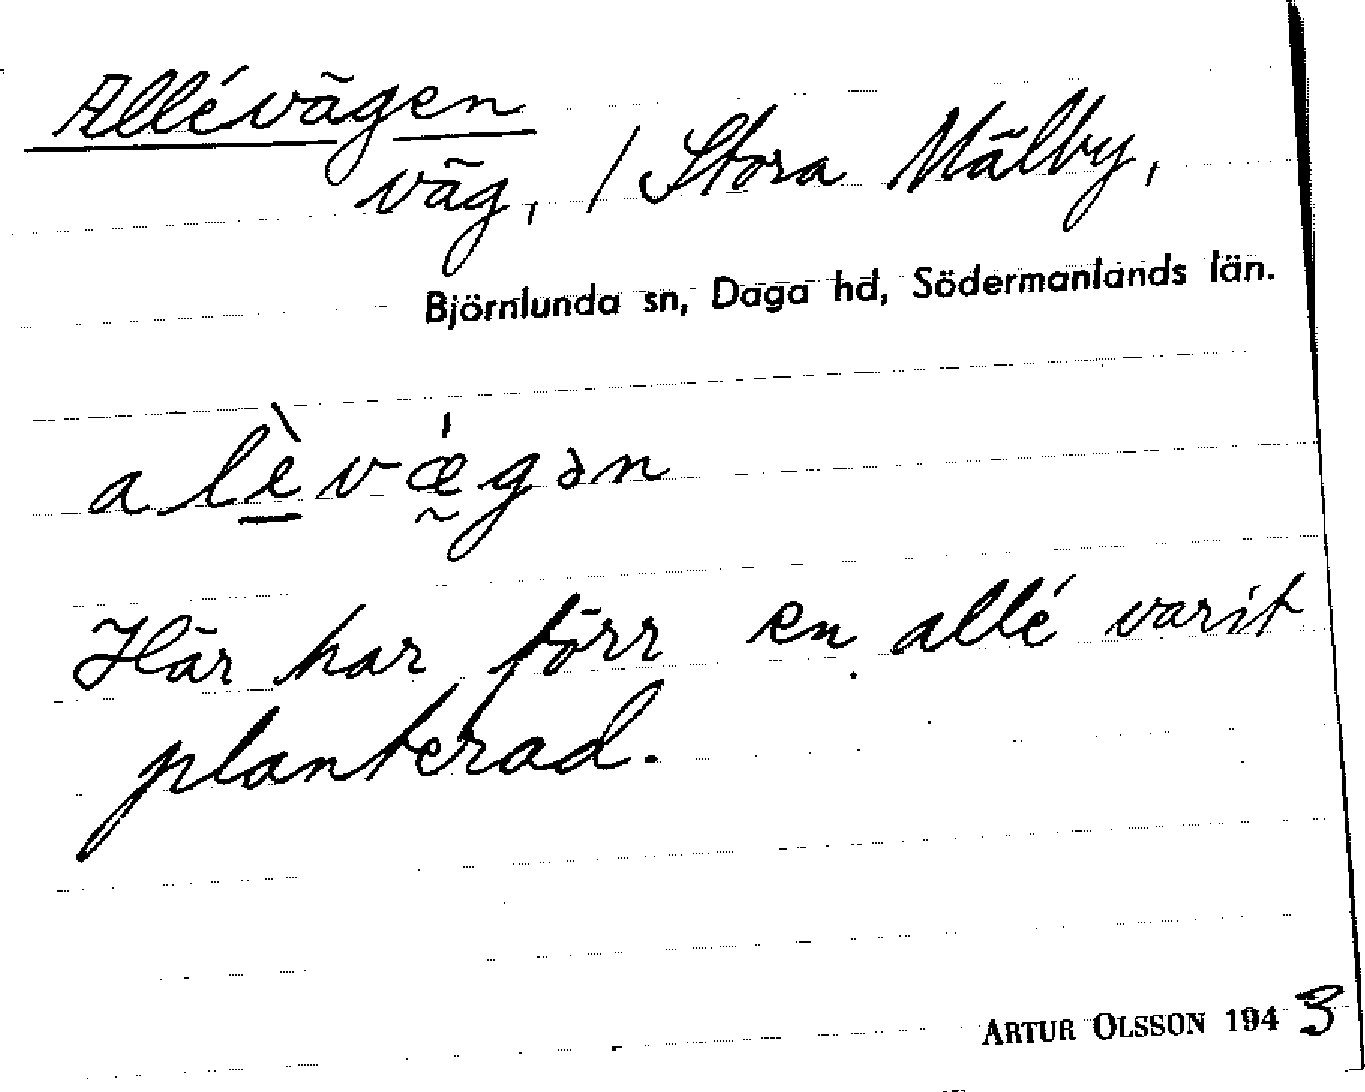 Allévägen
väg, / Stora Mälby,
Björnlunda sn, Daga hd, Södermanlands län.
alèvǽgən
Här har förr en allé varit
planterad.
ARTUR OLSSON 1943